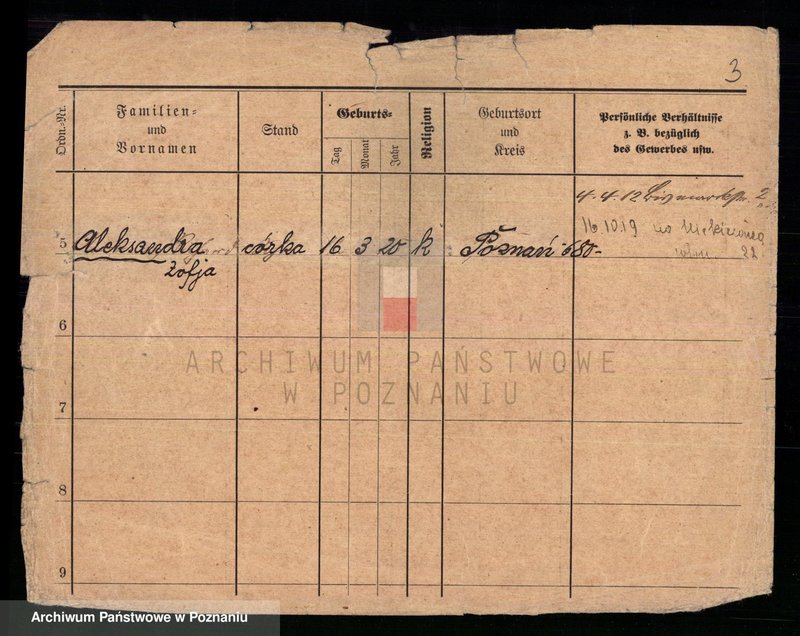 3
Ordn.-Nr.
Familien-
und
Vornamen
Stand
Geburts-
Tag
Monat
Jahr
Religion
Geburtsort
und
Kreis
Persönliche Verhältnisse
z. B. bezüglich
des Gewerbes usw.
4.4.12 Bismarckstr. 2
16.10.19 na
22
5 Aleksandra córka 16 3 20 k Poznań 680-
Zofja
6
ARCHIWUM PAŃSTWOWE
W POZNANIU
7
8
9
Archiwum Państwowe w Poznaniu